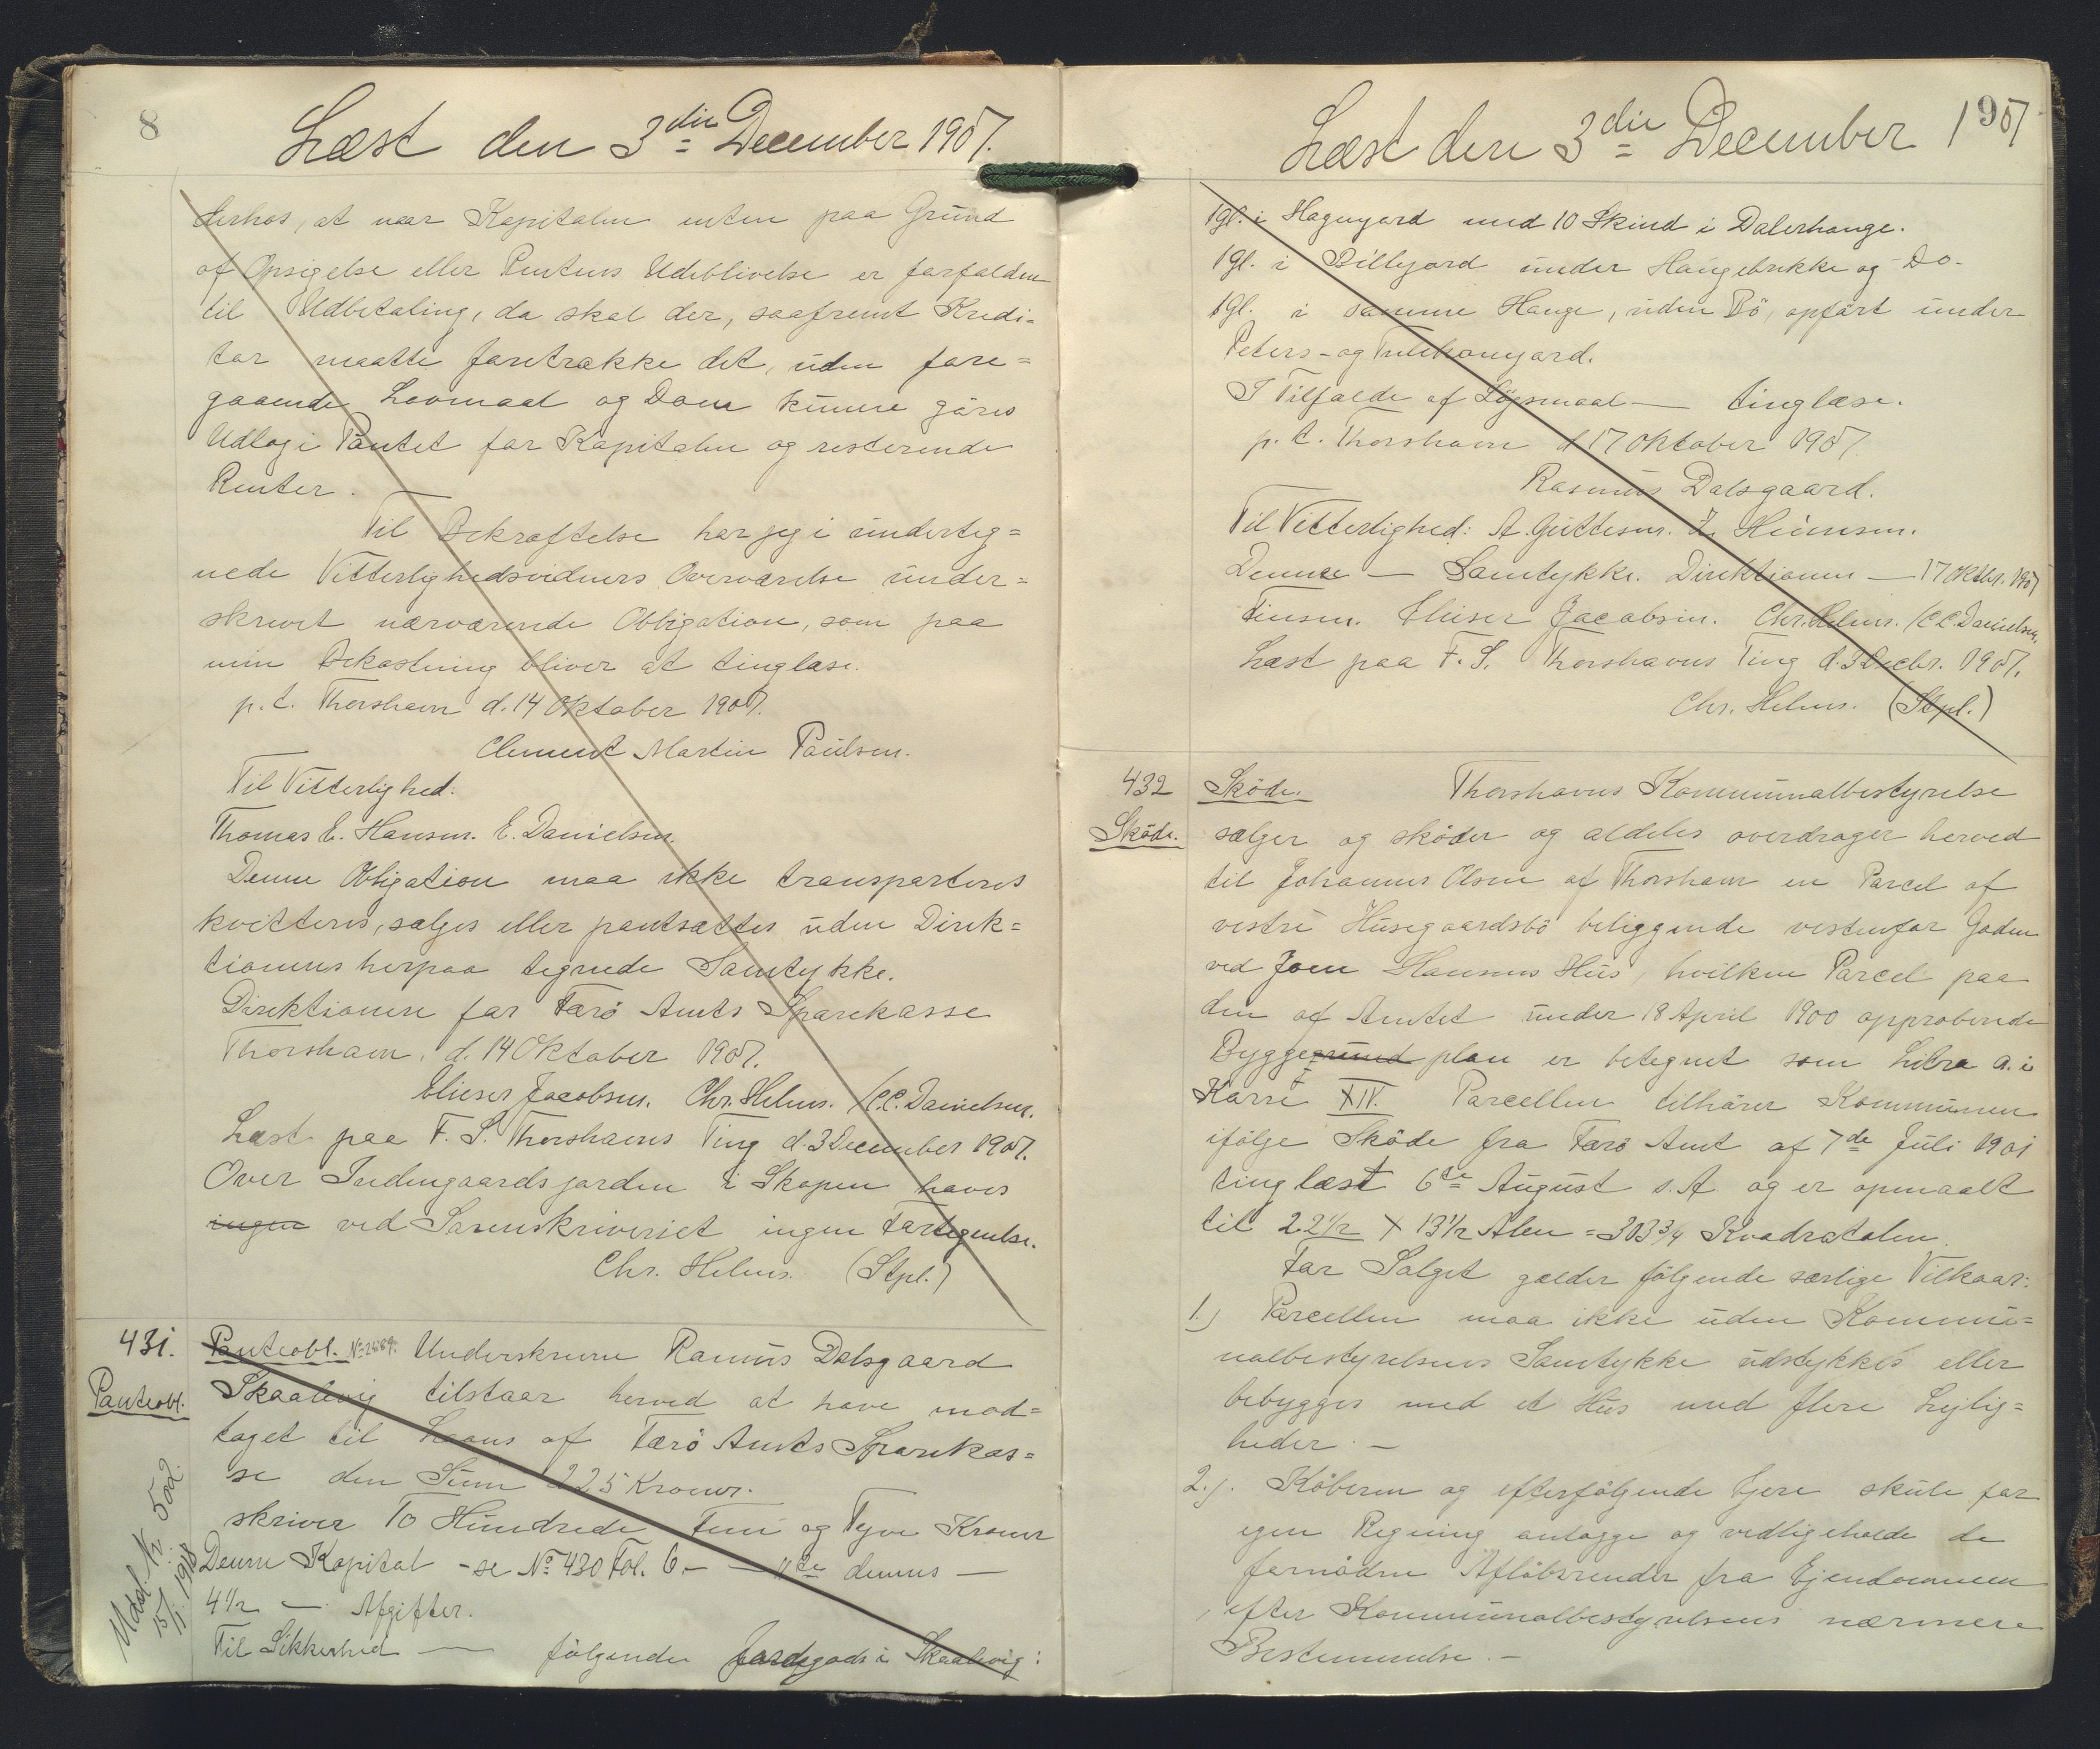 8
Læst den 3die December 1907.
derhos, at naar Kapitalen enten paa Grund
af Opsigelse eller Rentens Udeblivelse er forfalden
til Udbetaling, da skal der, saafremt Kredi=
tor maatte foretrække det, uden fore=
gaaende Lovmaal og Dom kunne göres
Udlæg i Pantet for Kapitalen og resterende
Renter.
Til Bekræftelse har jeg i underteg=
nede Vitterlighedsvidners Overværelse under=
skrevet nærværende Obligation, som paa
min Bekostning bliver at tinglæse.
p. t. Thorshavn d. 14 Oktober 1907.
Clement Martin Poulsen.
Til Vitterlighed:
Thomas E. Hansen. E. Danielsen.
Denne Obligation maa ikke transporteres
kvitteres, sælges eller pantsættes uden Direk=
tionens herpaa tegnede Samtykke.
Direktionen for Færö Amts Sparekasse
Thorshavn, d. 14 Oktober 1907.
Elieser Jacobsen. Chr. Helms. /C.C. Danielsen.
Læst paa F. S. Thorshavns Ting d. 3 December 1907.
Over Indengaardsjorden i Skopen haves
ingen ved Sorenskriveriet ingen Fortegnelse.
Chr. Helms. (Stpl.)
431.
Panteobl.
Panteobl. Nº 2689. Underskrevne Rasmus Dalsgaard
Skaalevig tilstaar herved at have mod=
taget til Laans af Færö Amts Sparekas=
se den Sum 225 Kroner.
skriver To Hundrede Fem og Tyve Kroner
Denne Kapital - se Nº 430 Fol. 6. — 11te dennes —
4½ — Afgifter.
Til Sikkerhed — følgende Jordegods i Skaalevig:
Udsl. Nr. 502.
15/1. 1918
Læst den 3die December 1907
1 gl. i Hagnyard med 10 Skind i Dalerhauge.
1 gl. i Billegard under Haugebrekke og Do-
1 gl. i samme Hauge, uden Bö, opfört under
Peters- og
I Tilfælde af Sögsmaal — tinglæse.
p. t. Thorshavn d 17 Oktober 1907.
Rasmus Dalsgaard.
Til Vitterlighed: A. Guttesen. Z. Heinesen.
Denne — Samtykke. Direktionen — 17 Oktbr. 1907
Finsen. Elieser Jacobsen. Chr. Helms. /C.C. Danielsen.
Læst paa F. S. Thorshavns Ting d. 3 Decbr. 1907.
Chr. Helms. (Stpl.)
432
Sköde.
Sköde. Thorshavns Kommunalbestyrelse
sælger og sköder og aldeles overdrager herved
til Johannes Olsen af Thorshavn en Parcel af
vestre Husegaardsbö beliggende vestenfor Gaden
ved Joen Hansens Hus, hvilken Parcel paa
den af Amtet under 18 April 1900 approberede
Byggegrund plan er betegnet som Litra a. i
Karre XIV. Parcellen tilhörer Kommunen
ifölge Sköde fra Færö Amt af 7de Juli 1901
tinglæst 6te August s. A og er opmaalt
til 22½ X 13½ Alen = 303¾ Kvadratalen.
For Salget gælder fölgende særlige Vilkaar:
1.) Parcellen maa ikke uden Kommu=
nalbestyrelsens Samtykke udstykkes eller
bebygges med et Hus med flere Lejlig=
heder. —
2.). Köberen og efterfölgende Ejere skule for
egen Regning anlægge og vedligeholde de
fornödne Aflöbsrender fra Ejendommen
efter Kommunalbestyrelsens nærmere
Bestemmelse. —